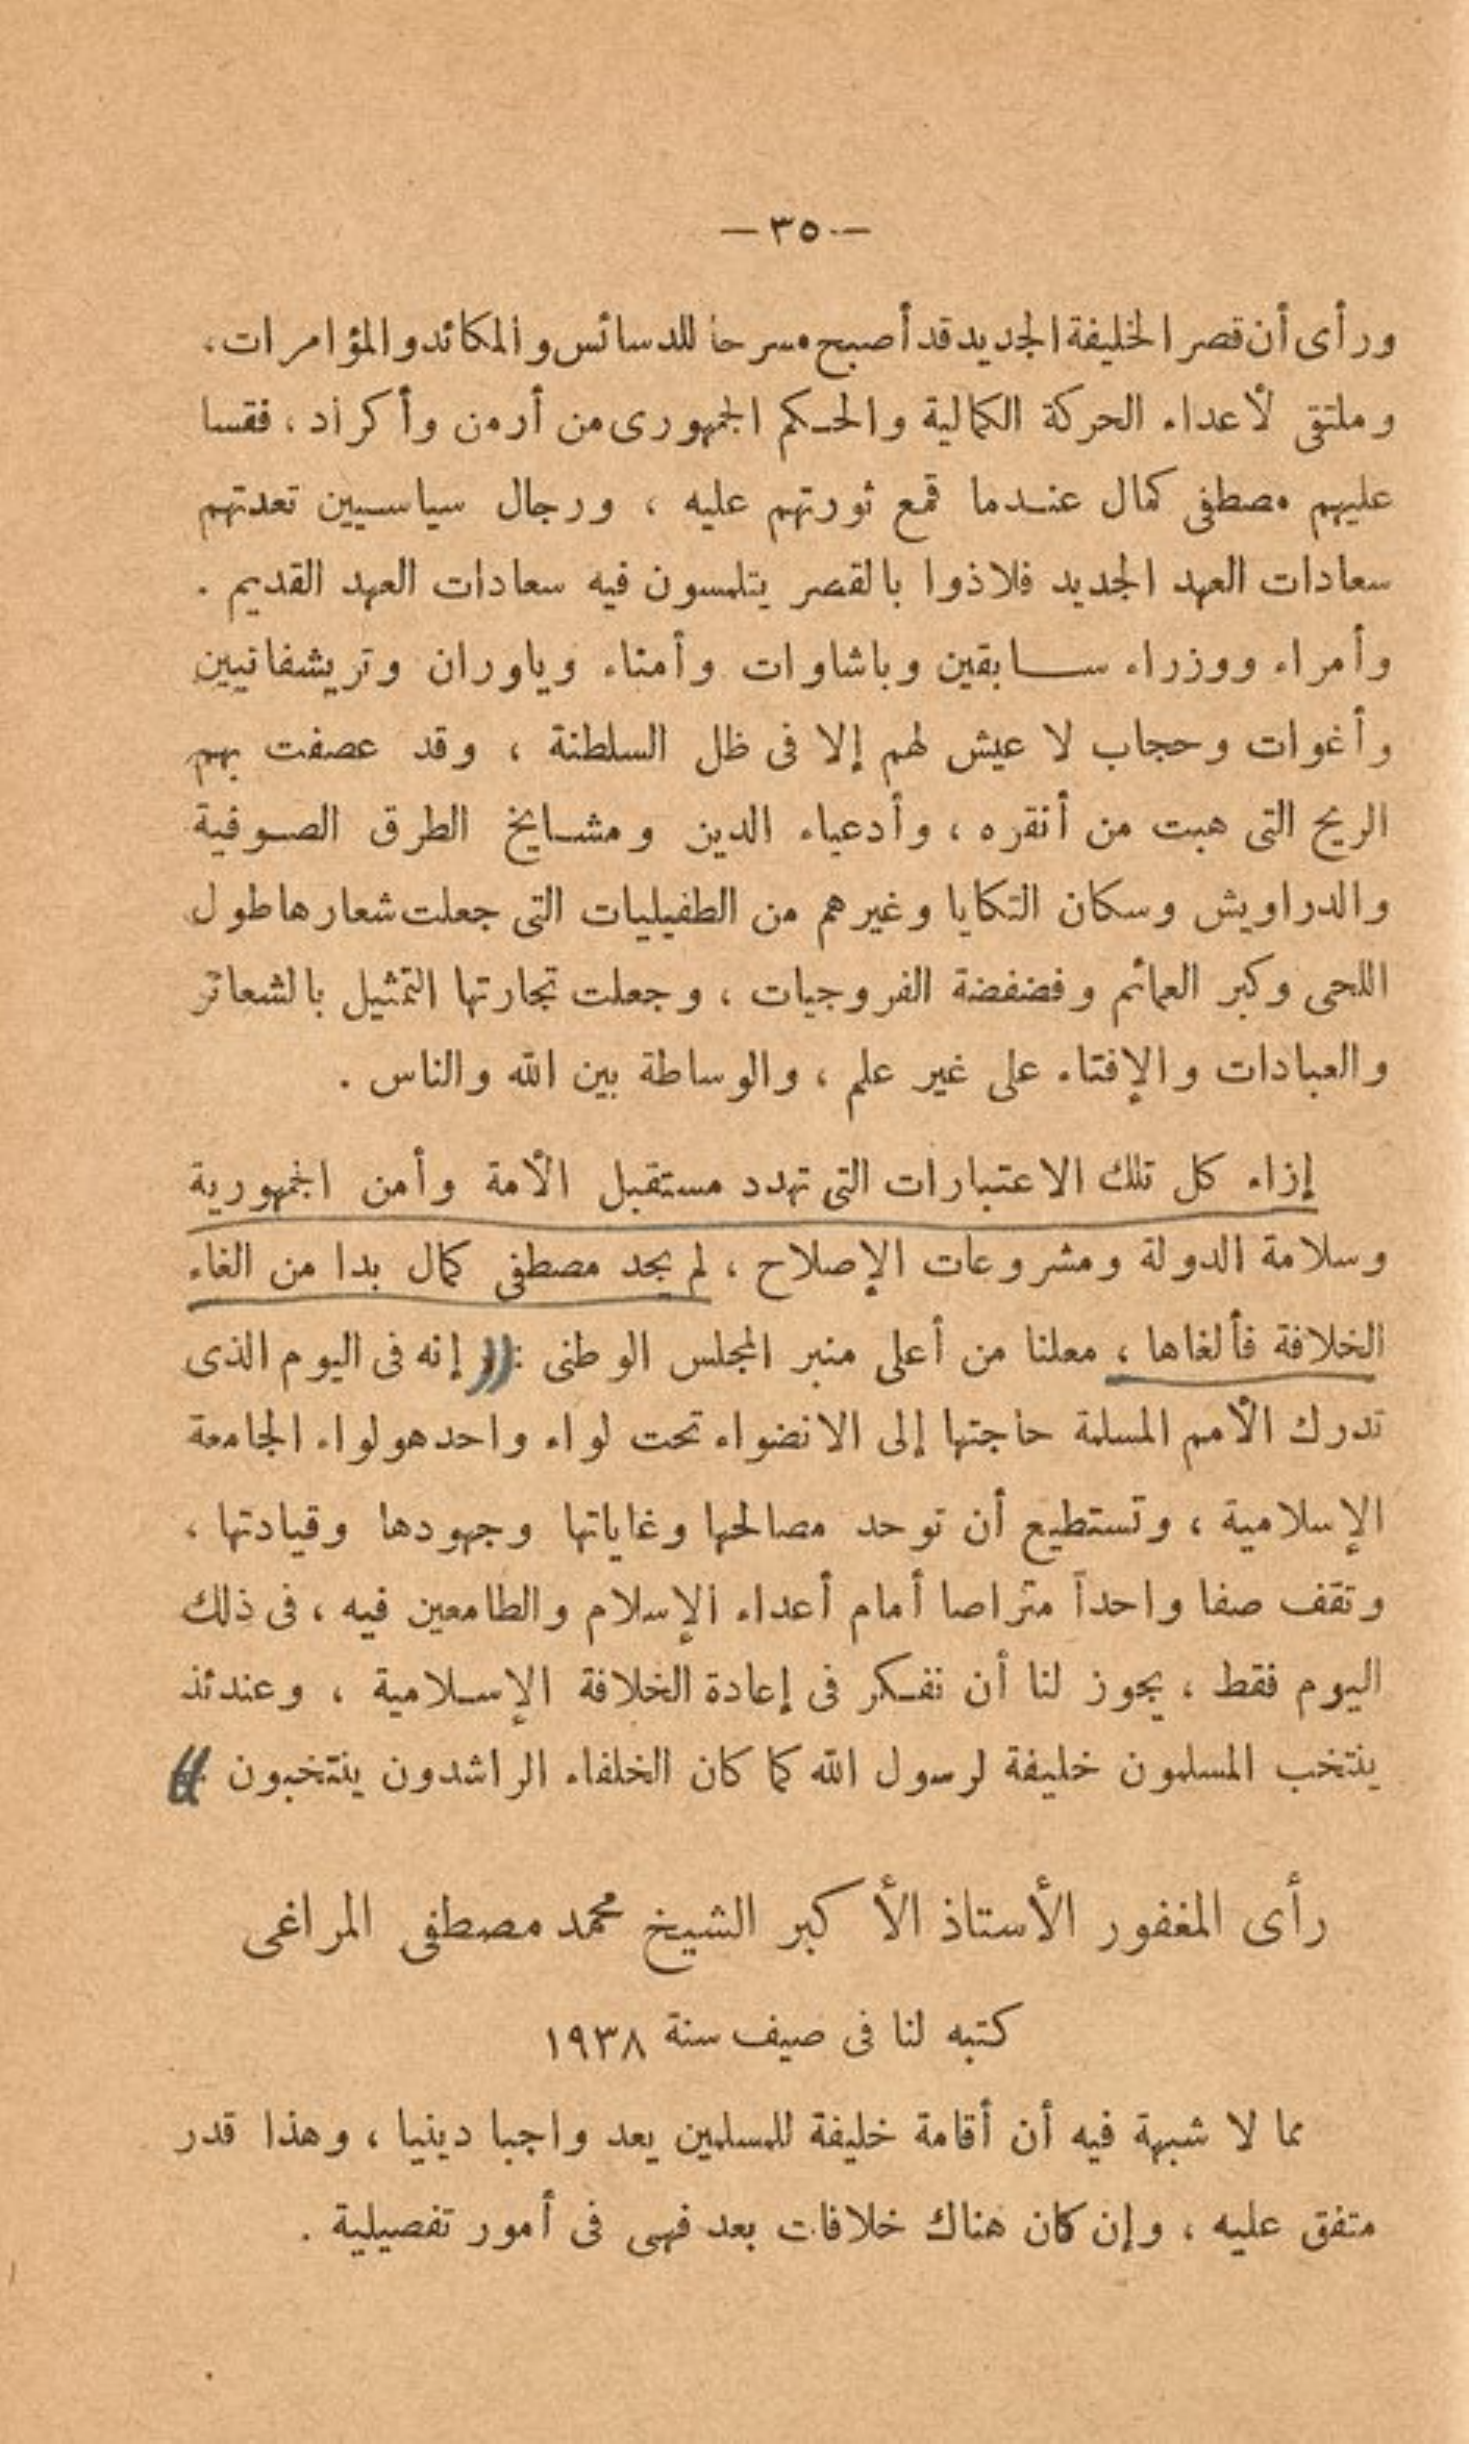 — ٣٥ —
ورأى أن قصر الخليفة الجديد قد أصبح مسرحاً للدسائس والمكائد والمؤامرات،
وملتقى لأعداء الحركة الكمالية والحكم الجمهورى من أرمن وأكراد، فقسا
عليهم مصطفى كمال عندما قمع ثورتهم عليه ، ورجال سياسيين تعدتهم
سعادات العهد الجديد فلاذوا بالقصر يتلمسون فيه سعادات العهد القديم .
وأمراء ووزراء سابقين وباشاوات وأمناء وياوران وتريشفاتيين
وأغوات وحجاب لا عيش لهم إلا فى ظل السلطنة ، وقد عصفت بهم
الريح التى هبت من أنقره ، وأدعياء الدين ومشايخ الطرق الصوفية
والدراويش وسكان التكايا وغيرهم من الطفيليات التى جعلت شعارها طول
اللحى وكبر العمائم وفضفضة الفروجيات ، وجعلت تجارتها التمثيل بالشعائر
والعبادات والإفتاء على غير علم ، والوساطة بين الله والناس .
إزاء كل تلك الاعتبارات التى تهدد مستقبل الأمة وأمن الجمهورية
وسلامة الدولة ومشروعات الإصلاح ، لم يجد مصطفى كمال بدا من الغاء
الخلافة فألغاها ، معلنا من أعلى منبر المجلس الوطنى : (( إنه فى اليوم الذى
تدرك الأمم المسلمة حاجتها إلى الانضواء تحت لواء واحد هو لواء الجامعة
الإسلامية ، وتستطيع أن توحد مصالحها وغاياتها وجهودها وقيادتها ،
وتقف صفا واحداً متراصا أمام أعداء الإسلام والطامعين فيه ، فى ذلك
اليوم فقط ، يجوز لنا أن نفكر فى إعادة الخلافة الإسلامية ، وعندئذ
ينتخب المسلمون خليفة لرسول الله كما كان الخلفاء الراشدون ينتخبون ))
رأى المغفور الأستاذ الأكبر الشيخ محمد مصطفى المراغى
كتبه لنا فى صيف سنة ١٩٣٨
مما لا شبهة فيه أن أقامة خليفة للمسلمين يعد واجبا دينيا ، وهذا قدر
متفق عليه ، وإن كان هناك خلافات بعد فهى فى أمور تفصيلية .